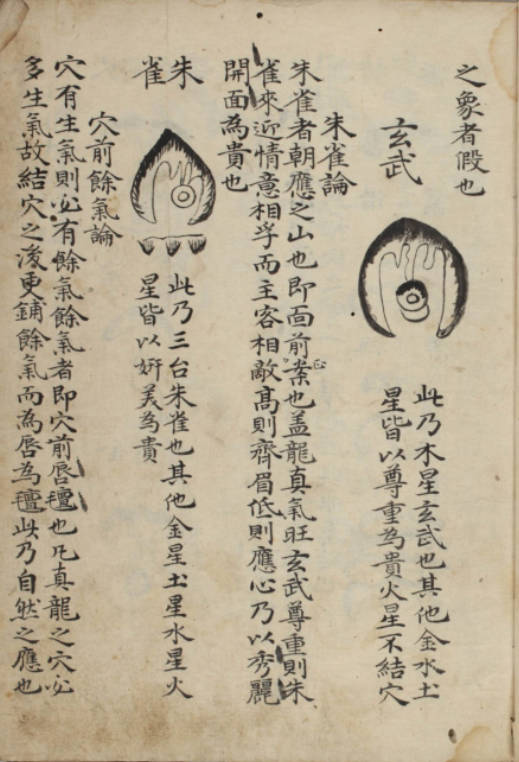 之象者假也
玄武
此乃木星玄武也其他金水土
星皆以尊重為貴火星不結穴
朱雀論
朱雀者朝應之山也即面前案也盖龍真氣旺玄武尊重則朱
雀來近情意相孚而主客相敵髙則齊眉低則應心乃以秀麗
開面為貴也
朱
雀
此乃三台朱雀也其他金星土星水星火
星皆以妍美為貴
穴前餘氣論
穴有生氣則必有餘氣餘氣者即穴前唇氊也凡真龍之穴必
多生氣故結穴之後更鋪餘氣而為唇為氊此乃自然之應也